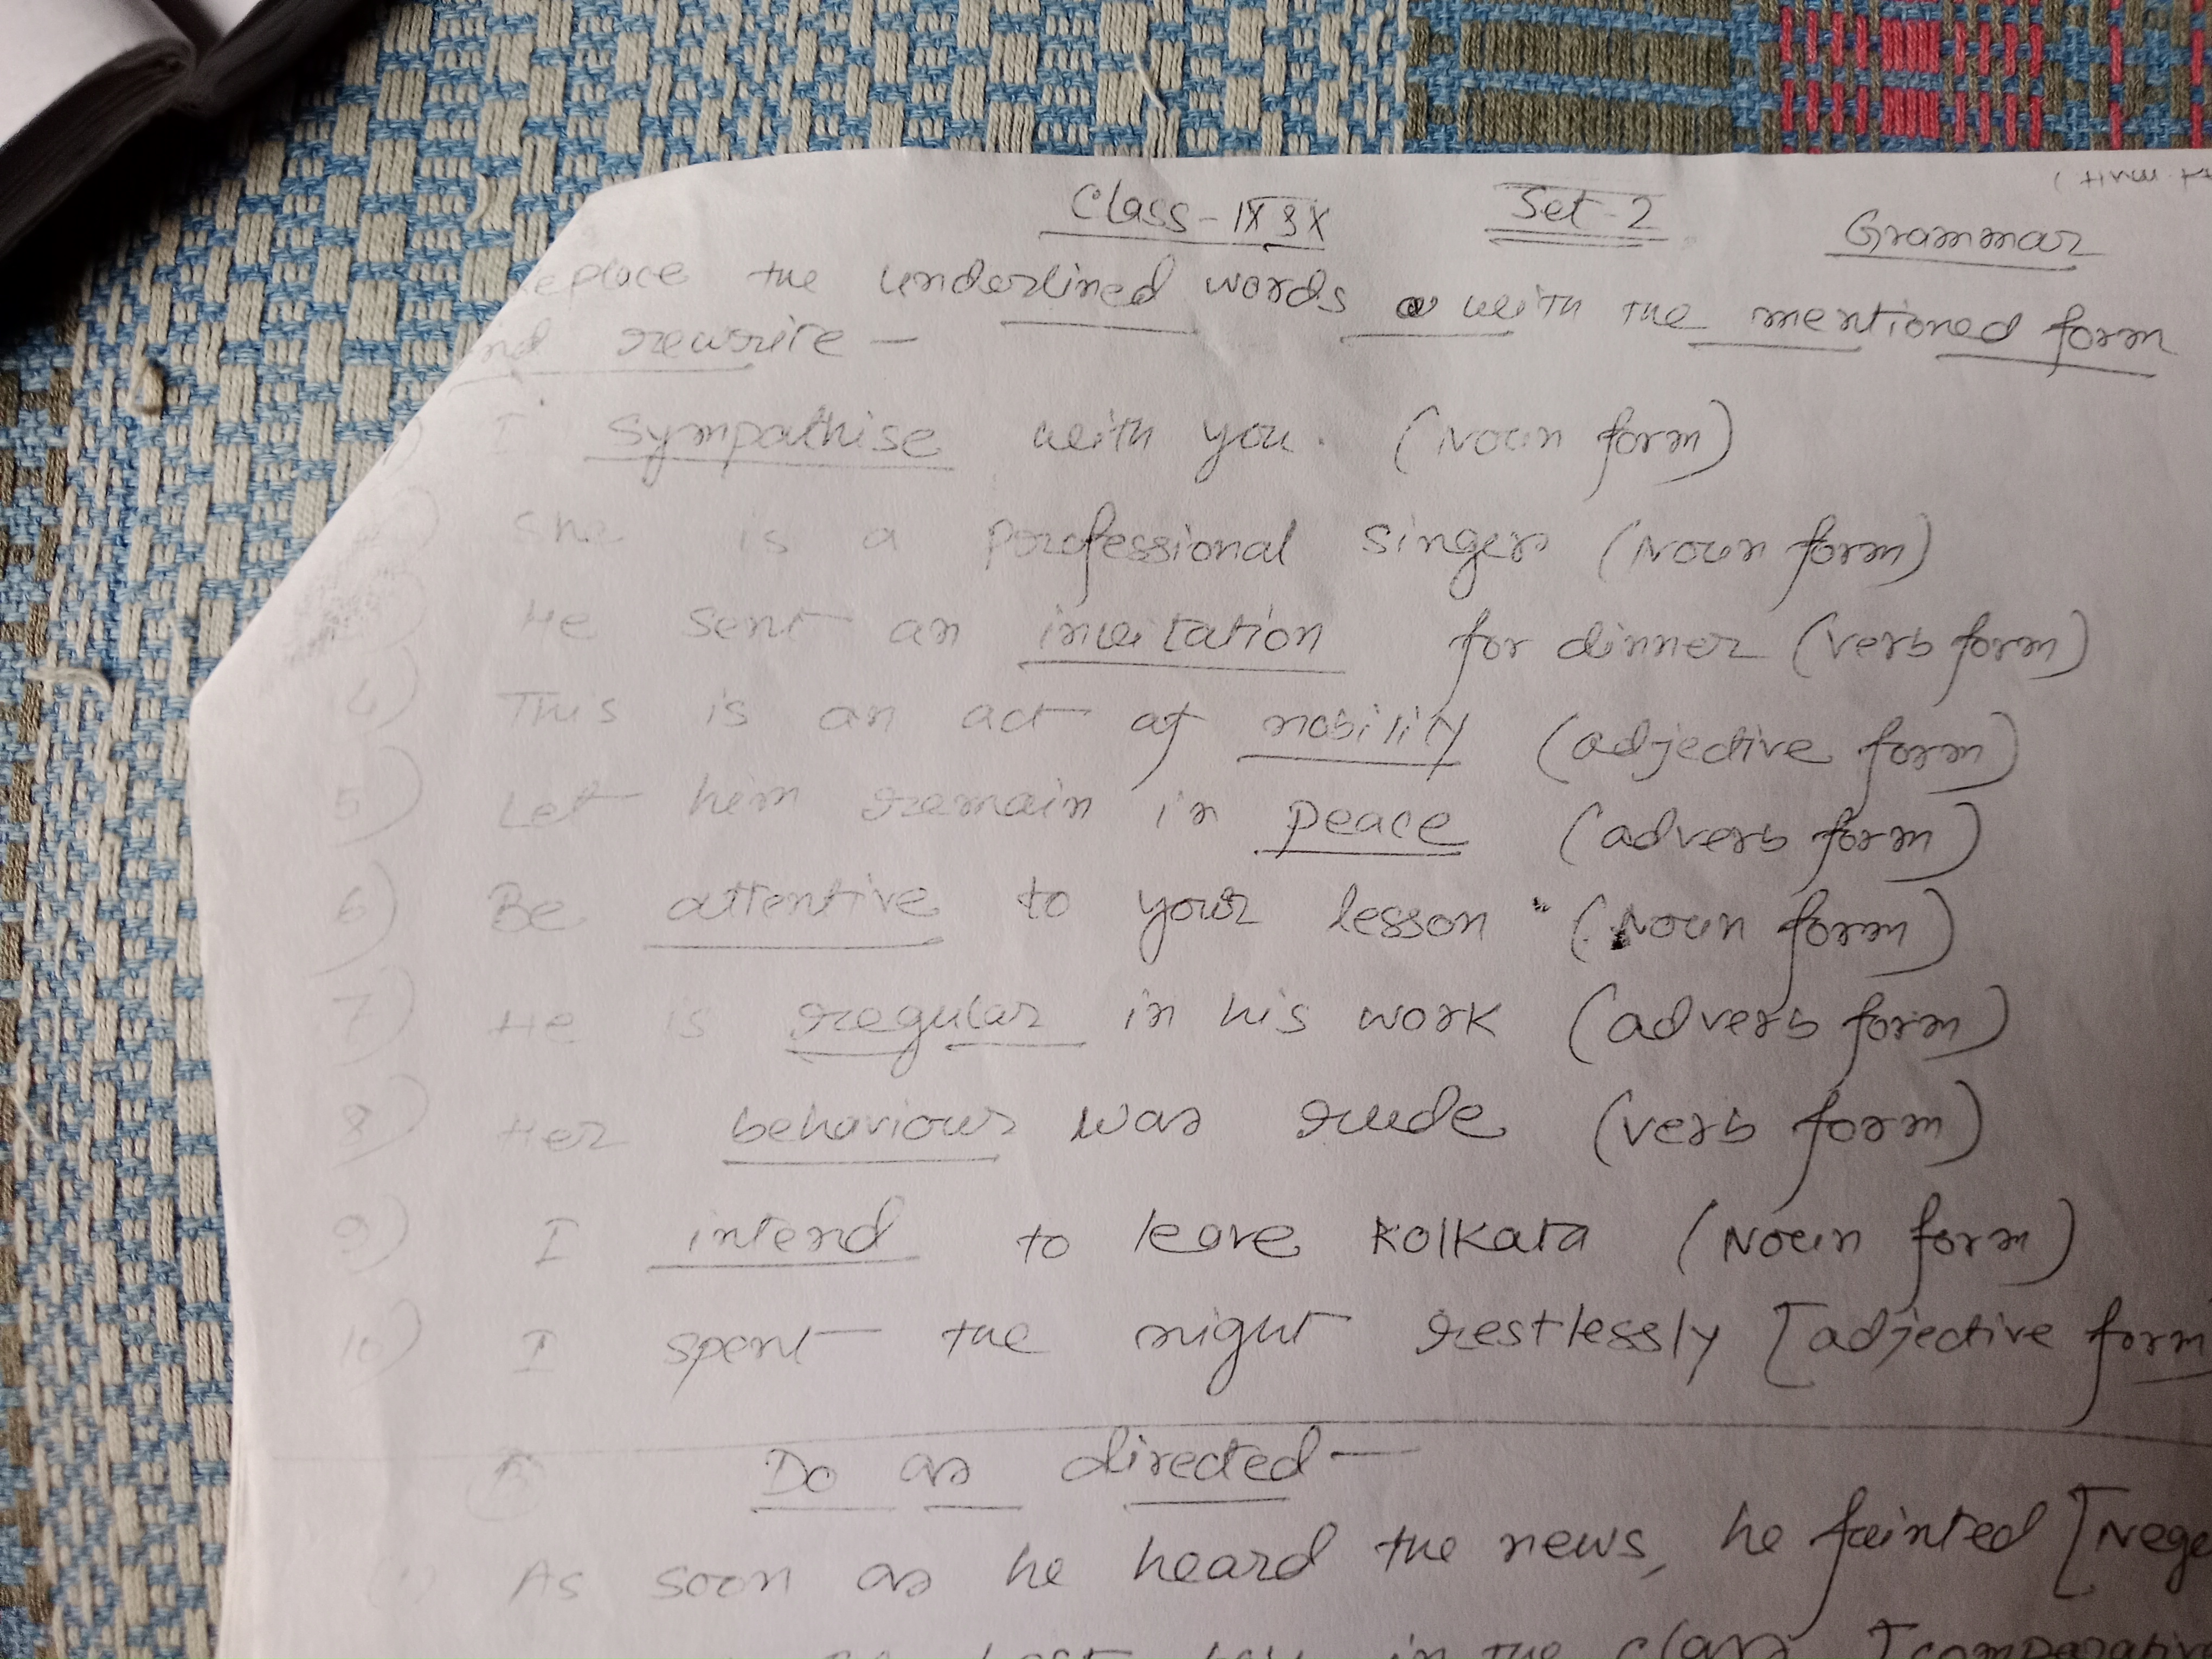 Class - IX & X Set - 2 Grammar
eplace the underlined words with the mentioned form
nd rewrite -
1) I sympathise with you. (Noun form)
She is a professional singer (Noun form)
He sent an invitation for dinner (verb form)
4) This is an act of nobility (adjective form)
5) Let him remain in peace (adverb form)
6) Be attentive to your lesson (Noun form)
7) He is regular in his work (adverb form)
8) Her behaviour was rude (verb form)
9) I intend to leave Kolkata (Noun form)
10) I spent the night restlessly [adjective form
B Do as directed -
(1) As soon as he heard the news, he fainted [Nega
in the class [comparativ